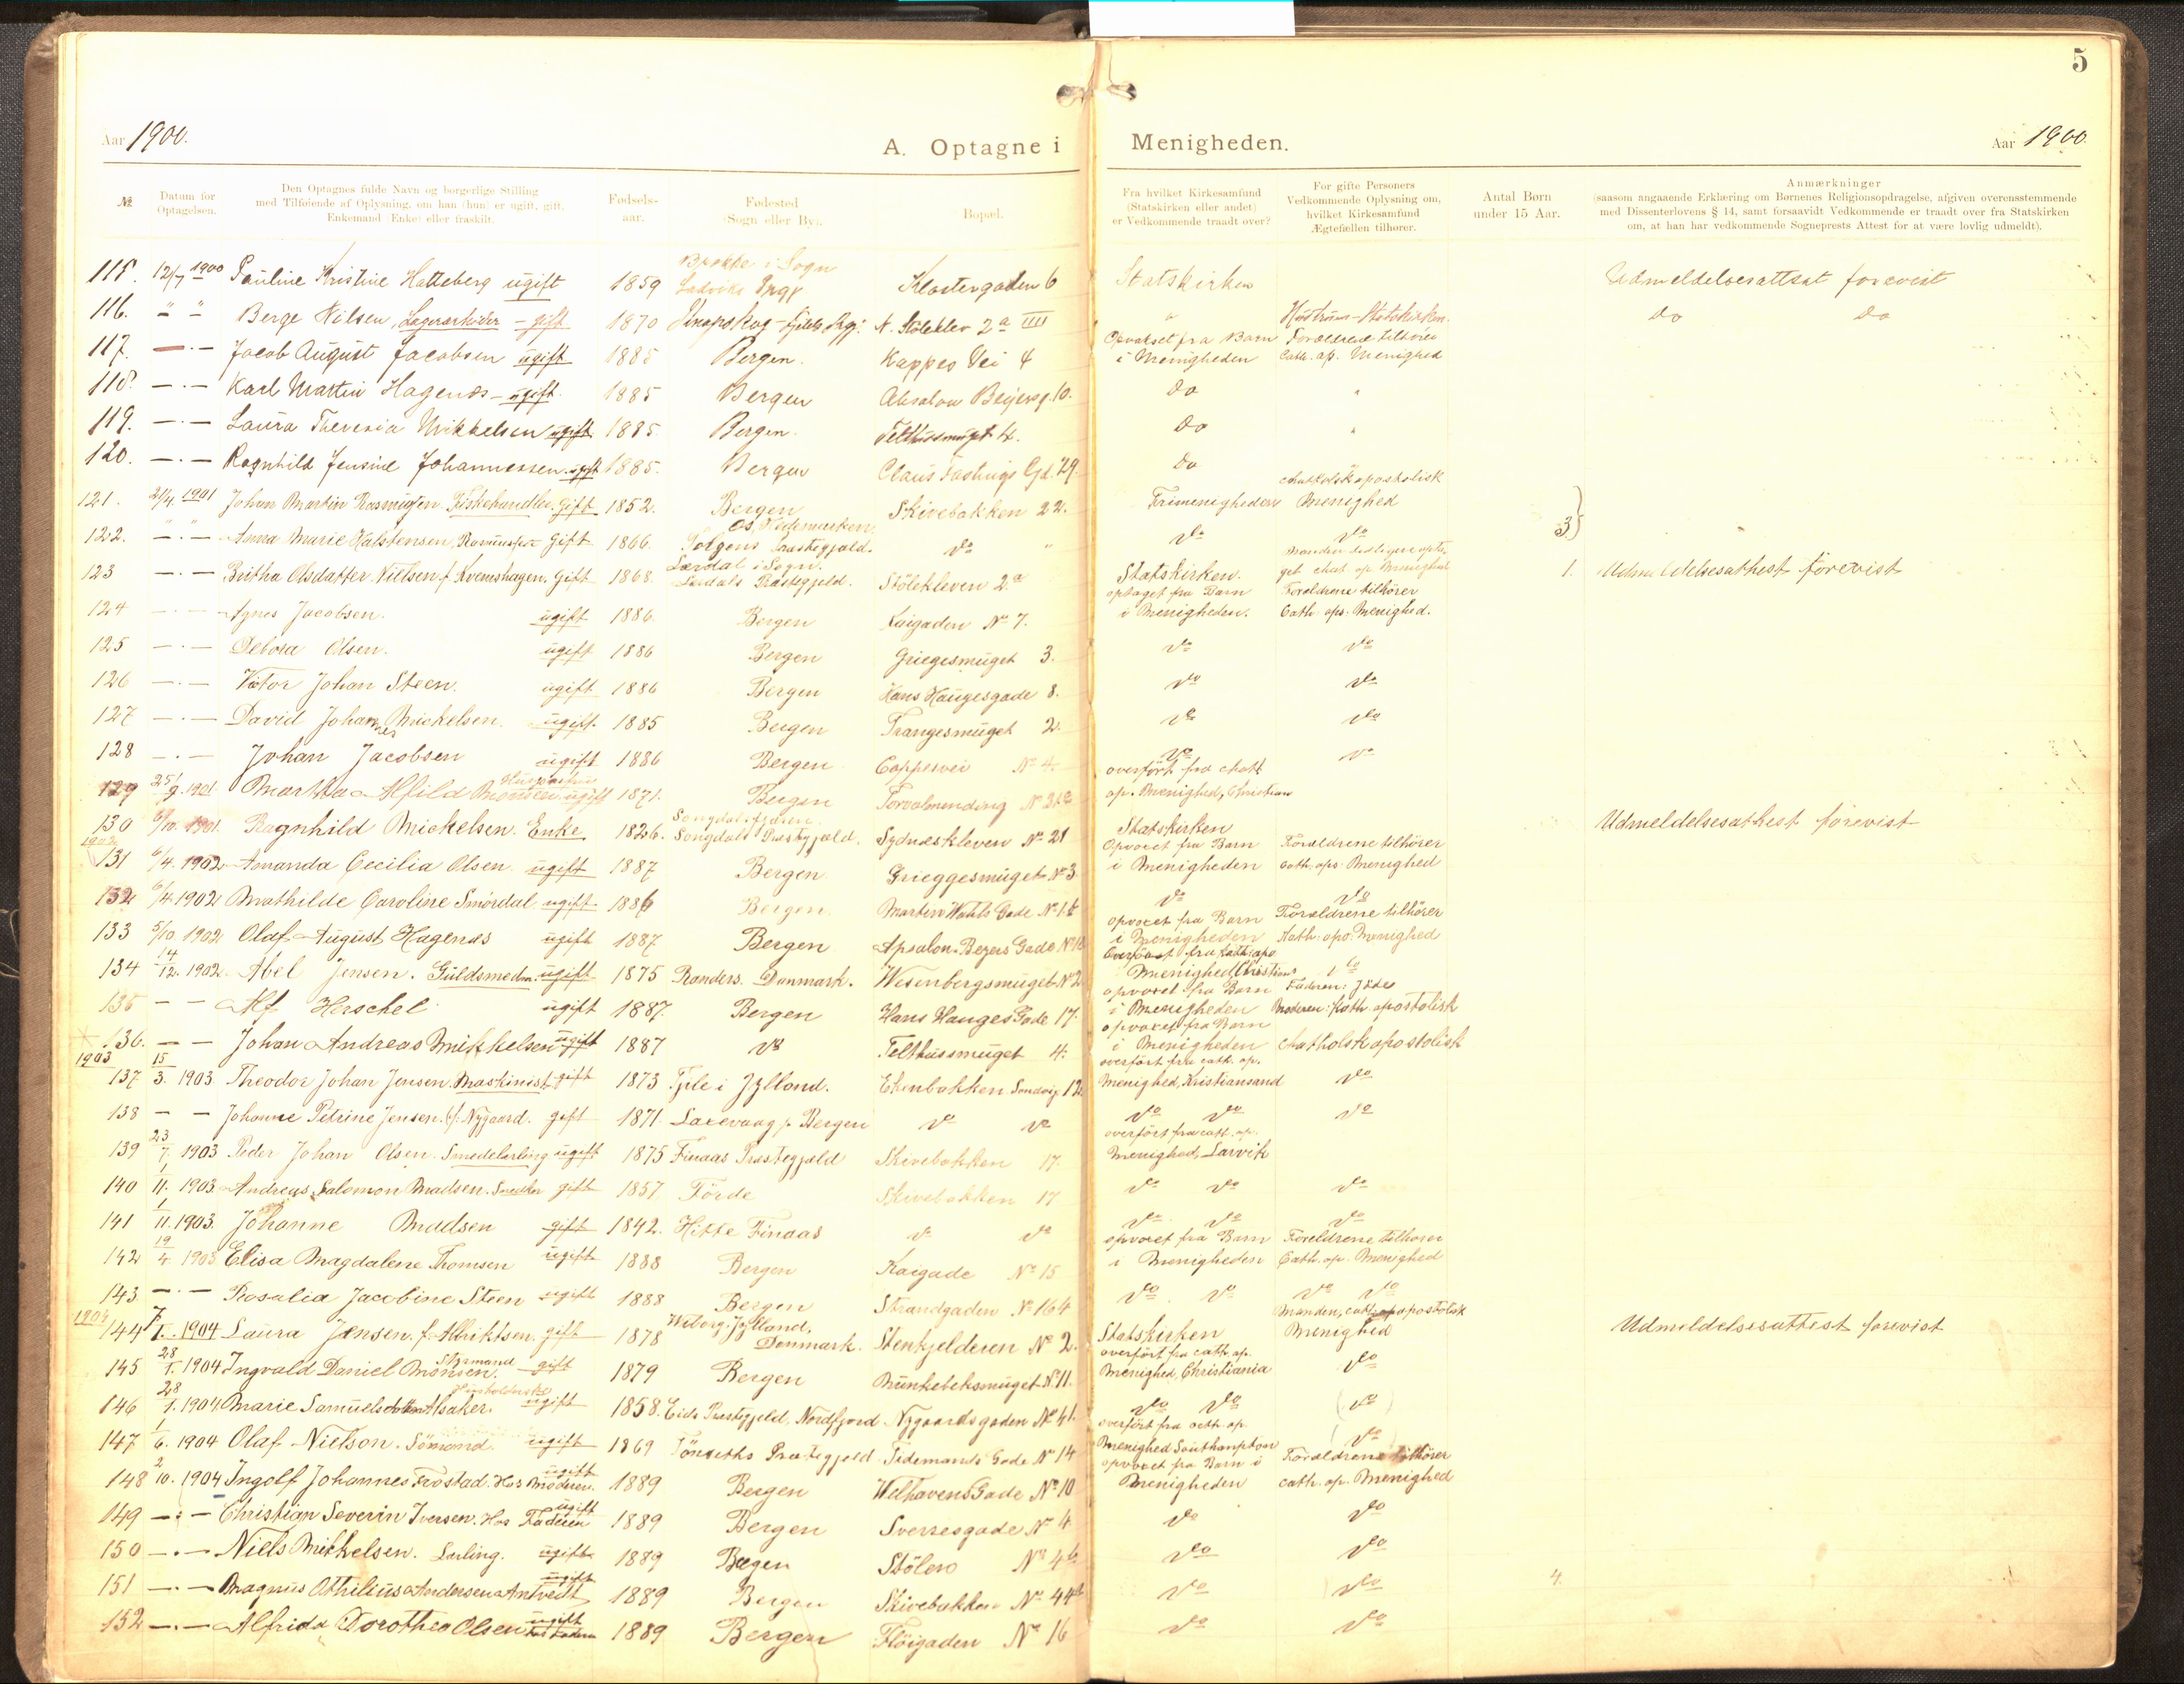 5
Aar 1900.
A. Optagne i Menigheden.
Aar 1900.
№
Datum for Optagelsen.
Den Optagnes fulde Navn og borgerlige Stilling med Tilføiende af Oplysning, om han (hun) er ugift, gift, Enkemand (Enke) eller fraskilt.
Fødsels-aar.
Fødested (Sogn eller By).
Bopæl.
Fra hvilket Kirkesamfund (Statskirken eller andet) er Vedkommende traadt over?
For gifte Personers Vedkommende Oplysning om, hvilket Kirkesamfund Ægtefællen tilhører.
Antal Børn under 15 Aar.
Anmærkninger
(saasom angaaende Erklæring om Børnenes Religionsopdragelse, afgiven overensstemmende med Dissenterlovens § 14, samt forsaavidt Vedkommende er traadt over fra Statskirken om, at han har vedkommende Sogneprests Attest for at være lovlig udmeldt).
115. 12/7 1900 Pauline Kristine Hatteberg ugift 1859 Brekke i Sogn Klostergaden 6 Statskirken
116. " " Berge Nilsen, Lagerarbeider - gift 1870 N. Stölekler 2a III " Hustruen - Statskirken. do do
117. —.— Jacob August Jacobsen ugift 1885 Bergen. Kappes Vei 4 Opvokset fra Barn i Menigheden Forældrene tilhörer Cath. ap. Menighed
118. —.— Karl Martin Hagenæs - ugift. 1885 Bergen Absalon Beyersg. 10. do "
119. —.— Laura Theresia Mikkelsen ugift. 1885. Bergen. Telthusmuget 4. do "
120. —.— Ragnhild Jensine Johannessen. ugift 1885. Bergen Claus Fastings Gd. 29 do "
121. 21/4 1901 Johan Martin Rasmussen Fiskehandler. Gift 1852. Bergen Skivebakken 22. Frimenigheden chatholsk apostolisk Menighed 3}
122. —.— Anna Marie Halstensen, Gift 1866. Os, Hedemarken, Præstegjæld. do " do do
123 —.— Britha Olsdatter Nielsen f. Kvemshagen. Gift 1868. Lærdal i Sogn. Lærdals Præstegjeld. Stölekleven 2a Statskirken. Manden tidligere opta-get chat. ap. Menighed 1. Udmeldelsesathest forevist
124 —.— Agnes Jacobsen. ugift 1886. Bergen Kaigaden No 7. optaget fra Barn i Menigheden. Forældrene tilhörer Cath. aps. Menighed.
125 —.— Debora Olsen. ugift 1886 Bergen Griegesmuget 3. do do
126 —.— Victor Johan Steen. ugift 1886 Bergen Hans Haugesgade 8. do do
127 —.— David Johannes Mickelsen. ugift. 1885 Bergen Trangesmuget 2. do do
128 —.— Johan Jacobsen ugift 1886 Bergen Cappesvei No 4. do do
129 25/9. 1901 Martha Alfild Monsen ugift 1871. Bergen Torvalmending No overfört fra chatt. ap. Menighed, Christian
130 6/10. 1901. Ragnhild Mickelsen. Enke 1826. Songdalsfjæren Songdals Præstegjæld. Sydneskleven No 21 Statskirken Udmeldelsesathest forevist
1902
131 6/4. 1902 Amanda Cecilia Olsen. ugift 1887 Bergen Grieggesmuget No 3 Opvoxet fra Barn i Menigheden Forældrene tilhörer cath. aps. Menighed
132 6/4. 1902 Mathilde Caroline Smördal. ugift. 1886 Bergen do do
133 5/10. 1902 Olaf August Hagenæs ugift 1887 Bergen Apsalon Beyers Gade No 10 opvoxet fra Barn i Menigheden Forældrene tilhörer Kath. apo. Menighed
134 14/12. 1902. Abel Jensen. Guldsmedm. ugift 1875 Randers. Danmark. Wesenbergsmuget No 2 Overfört fra kath. apo Menighed, Christians do
135 — — Alf Herschel ugift 1887. Bergen Hans Hauges Gade 17. opvoxet fra Barn i Menigheden Faderen: Jöde Moderen: Kath. apostolisk
136. — — Johan Andreas Mikkelsen ugift 1887 do Telthussmuget 4. opvoxet fra Barn i Menigheden chatholsk apostolisk
1903
137 15/3. 1903 Theodor Johan Jensen. Maskinist gift 1873 Tjele i Jylland. Ekenbakken Sandvig. 12 overfört fra cath. ap. Menighed, Kristiansand do
138 — — Johanne Petrine Jensen. (f. Nygaard. gift 1871. Laxevaag p. Bergen do do do do do
139 23/7. 1903 Peder Johan Olsen. Smedelærling ugift 1875 Finaas Præstegjæld Skivebakken 17. overfört fra cath. ap. Menighed, Larvik
140 1/11. 1903. Andreas Salomon Madsen. Snedker gift 1857 Förde Skivebakken 17 do do do
141 1/11. 1903. Johanne Madsen gift 1842. Hitte Finaas do do do do do
142 19/4. 1903 Elisa Magdalene Thomsen ugift 1888 Bergen Kaigade No 15 opvoxet fra Barn i Menigheden Foreldrene tilhorer Cath. ap. Menighed
143. —.— Rosalia Jacobine Steen ugift 1888 Bergen Strandgaden No 164 do do do do
1904
144 7/1. 1904 Laura Jensen. f. gift 1878 Wiborg. Jylland, Denmark. Stenkjelderen No 2. Statskirken Manden, cath. apostolisk Menighed Udmeldelsesattest forevist
145 28/1. 1904 Ingvald Daniel Monsen. Styrmand gift 1879 Bergen Munkebeksmuget No 11. overfört fra cath. ap. Menighed, Christiania do
146 28/1. 1904. Marie Samuelsdatter Alsaker. Husholderske ugift 1858. Eids Præstegjeld, Nordfjord Nygaardsgaden No do do (do)
147 1/6. 1904 Olaf Nielson. Sömand. ugift 1869 Præstegjeld Tidemands Gade No 14 overfört fra cath. ap. Menighed Southampton (do)
148 2/10. 1904 Ingolf Johannes Frostad. Hos Moderen. ugift 1889 Bergen Welhavens Gade No 10 opvoxet fra Barn i Menigheden Forældrene tilhörer cath. ap. Menighed
149 —.— Christian Severin Iversen. Hos Faderen ugift 1889 Bergen Sverresgade No 4 do do
150 —.— Niels Mikkelsen. Lærling. ugift 1889 Begen Stölen No 4b do do
151 —.— Magnus Othilius Andersen Antvedt ugift 1889 Bergen Skivebakken No 44b do do 4.
152 —.— Alfrida Dorothea Olsen ugift 1889 Bergen Flöigaden No 16 do do